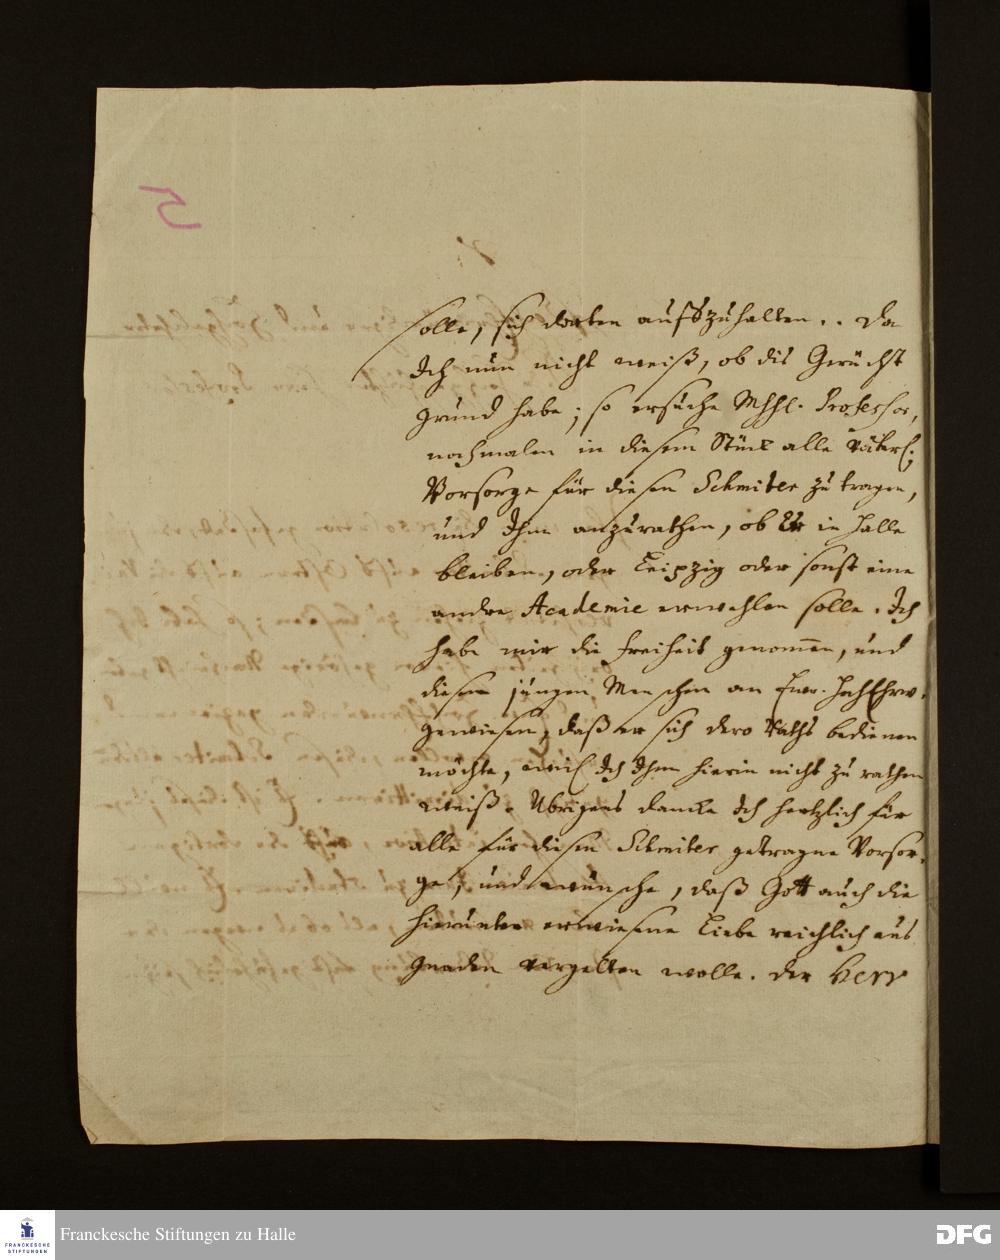 solle, sich dorten aufszuhalten.. Da
Ich nun nicht weiß, ob dis Gerücht
grund habe; so ersuche MhhL. Professor,
nochmalen in diesem Stück alle väterl.
Vorsorge für diesen Schmiter zu tragen,
und Ihm anzurathen, ob Er in Halle
bleiben, oder Leipzig oder sonst eine
andre Academie erwehlen solle. Ich
habe mir die freiheit genommen, und
diesen jungen Menschen an Euer. HochEhrw.
gewiesen, daß er sich dero Raths bedienen
möchte, weil Ich Ihm hierin nicht zu rathen
weiß. Ubrigens dancke Ich hertzlich für
alle für diesen Schmiter getragne Vorsor-
ge, und wünsche, daß Gott auch die
hierunter erwiesene Liebe reichlich aus
Gnaden vergelten wolle. Der Herr
5
FRANCKESCHE
STIFTUNGEN
Franckesche Stiftungen zu Halle
DFG